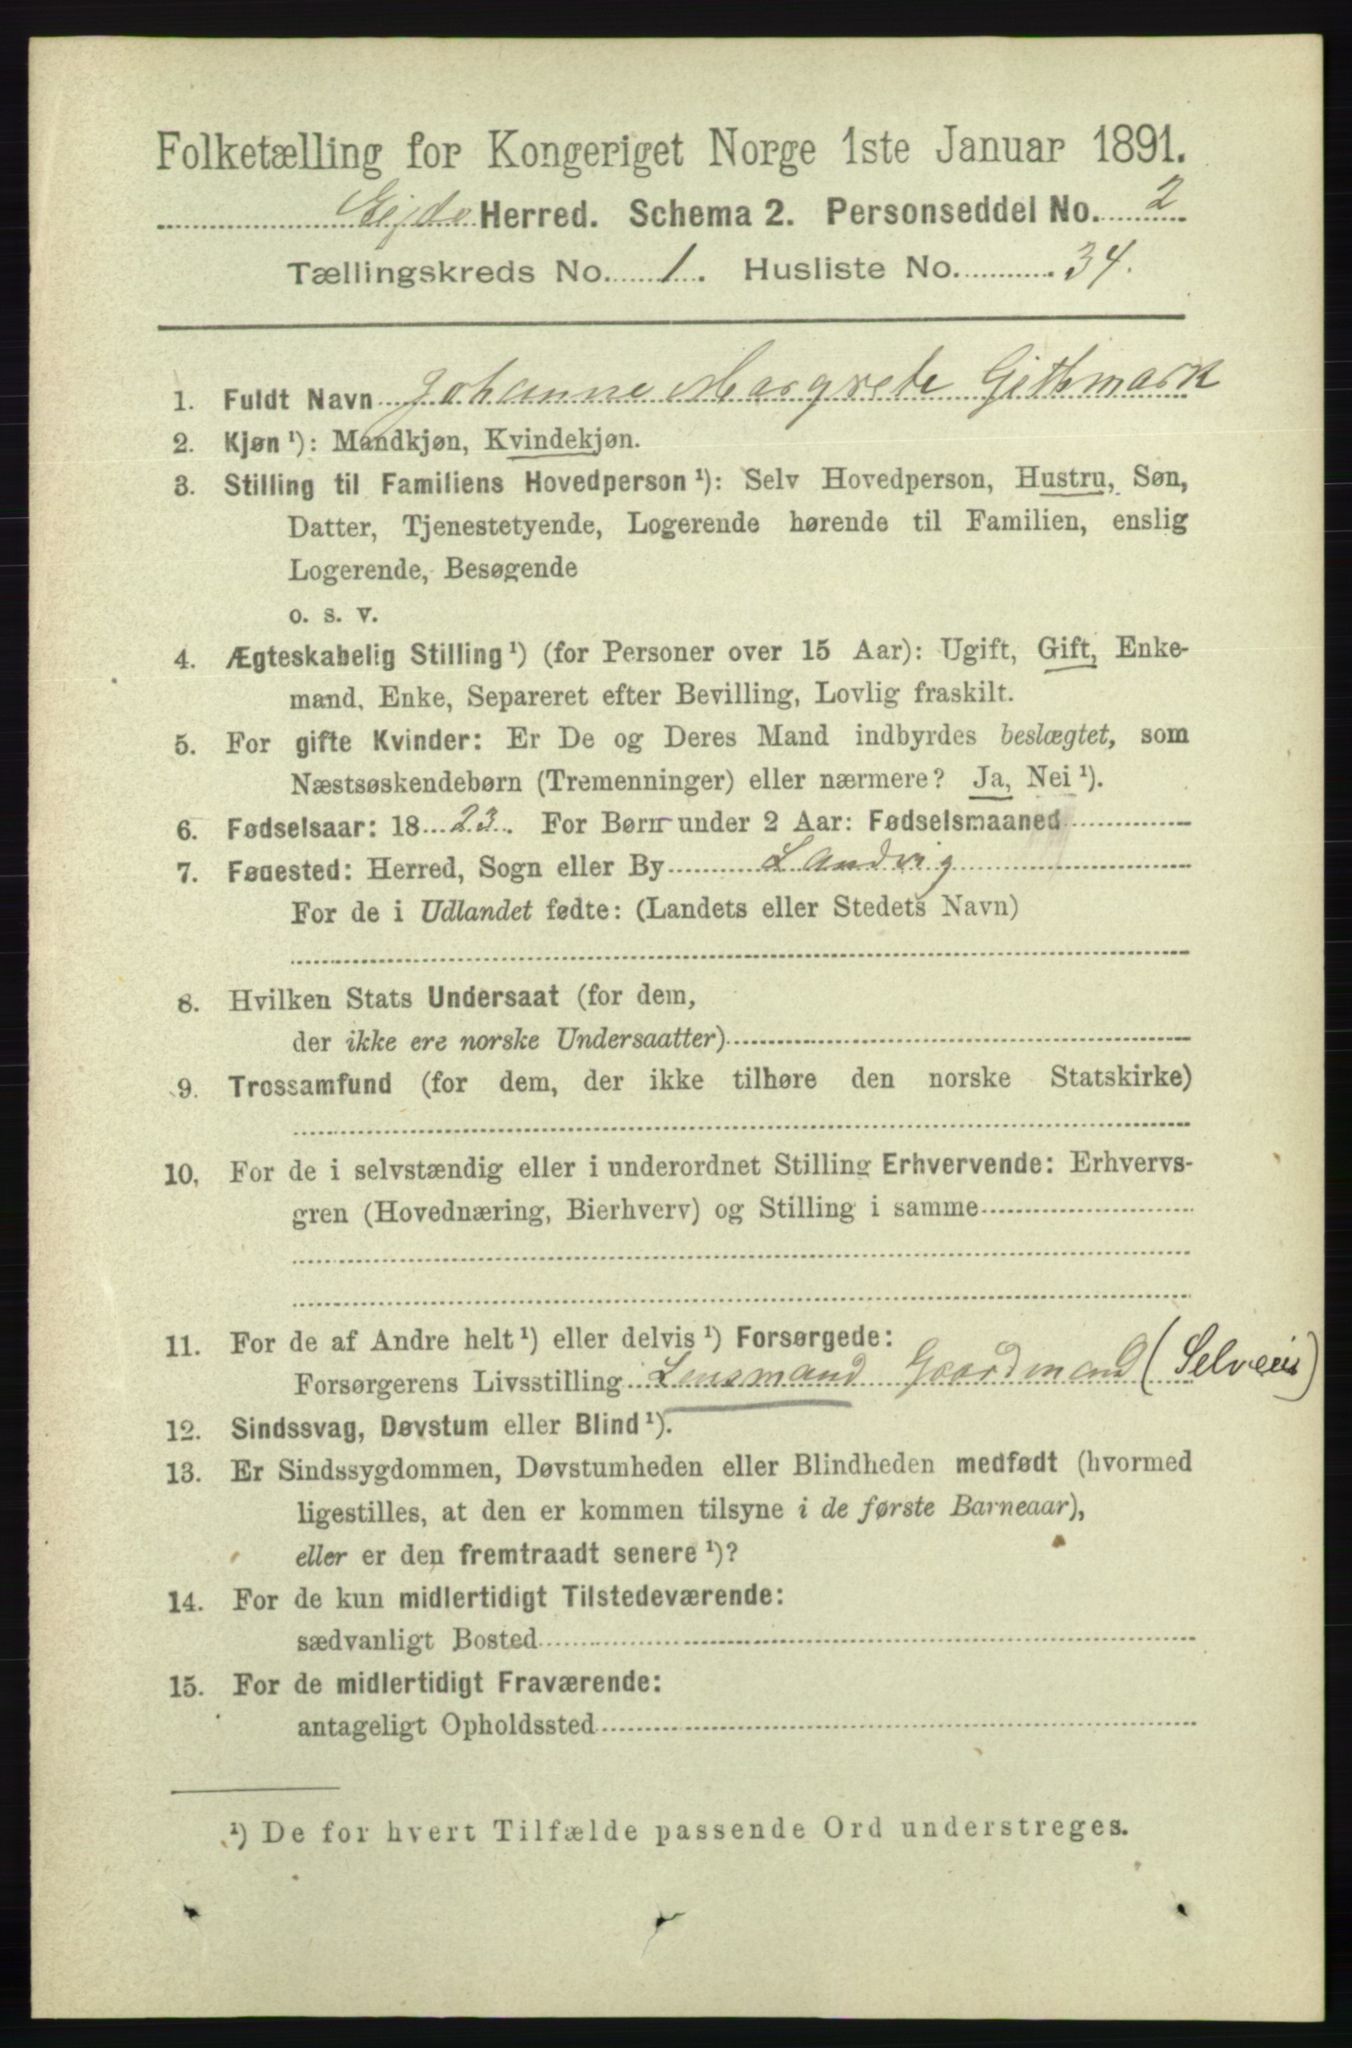 Folketælling for Kongeriget Norge 1ste Januar 1891.
Eijde Herred. Schema 2. Personseddel No. 2
Tællingskreds No. 1. Husliste No. 34.
1. Fuldt Navn Johanne Margrete Githmark
2. Kjøn¹): Mandkjøn, Kvindekjøn.
3. Stilling til Familiens Hovedperson¹): Selv Hovedperson, Hustru, Søn,
Datter, Tjenestetyende, Logerende hørende til Familien, enslig
Logerende, Besøgende
o. s. v.
4. Ægteskabelig Stilling¹) (for Personer over 15 Aar): Ugift, Gift, Enke-
mand, Enke, Separeret efter Bevilling, Lovlig fraskilt.
5. For gifte Kvinder: Er De og Deres Mand indbyrdes beslægtet, som
Næstsøskendebørn (Tremenninger) eller nærmere? Ja, Nei¹).
6. Fødselsaar: 1823. For Børn under 2 Aar: Fødselsmaaned
7. Fødested: Herred, Sogn eller By Landvig
For de i Udlandet fødte: (Landets eller Stedets Navn)
8. Hvilken Stats Undersaat (for dem,
der ikke ere norske Undersaatter)
9. Trossamfund (for dem, der ikke tilhøre den norske Statskirke)
10. For de i selvstændig eller i underordnet Stilling Erhvervende: Erhvervs-
gren (Hovednæring, Bierhverv) og Stilling i samme
11. For de af Andre helt¹) eller delvis¹) Forsørgede:
Forsørgerens Livsstilling Lensmand Gaardmand (Selveier)
12. Sindssvag, Døvstum eller Blind¹).
13. Er Sindssygdommen, Døvstumheden eller Blindheden medfødt (hvormed
ligestilles, at den er kommen tilsyne i de første Barneaar),
eller er den fremtraadt senere¹)?
14. For de kun midlertidigt Tilstedeværende:
sædvanligt Bosted
15. For de midlertidigt Fraværende:
antageligt Opholdssted
¹) De for hvert Tilfælde passende Ord understreges.